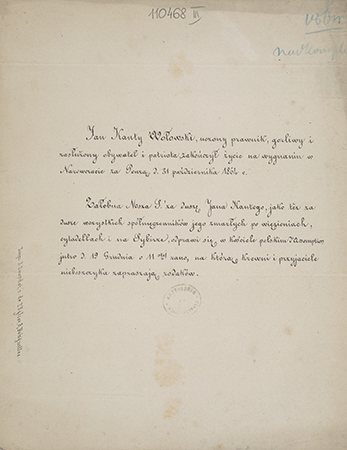 110468 II
Jan Kanty Wołowski, uczony prawnik, gorliwy i
zasłużony obywatel i patriota zakończył życie na wygnaniu w
Narwowocie za Penzą, d. 31 października 1864 r.
Żałobna Msza Sta za duszę Jana Kantego, jako też za
dusze wszystkich spółwygnańców jego zmarłych po więzieniach,
cytadellach i na Sybirze, odprawi się w kościele polskim d'Assomption
jutro d. 19 Grudnia o 11tej rano, na którą krewni i przyjaciele
nieboszczyka zapraszają rodaków.